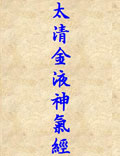 太清金液神氣經